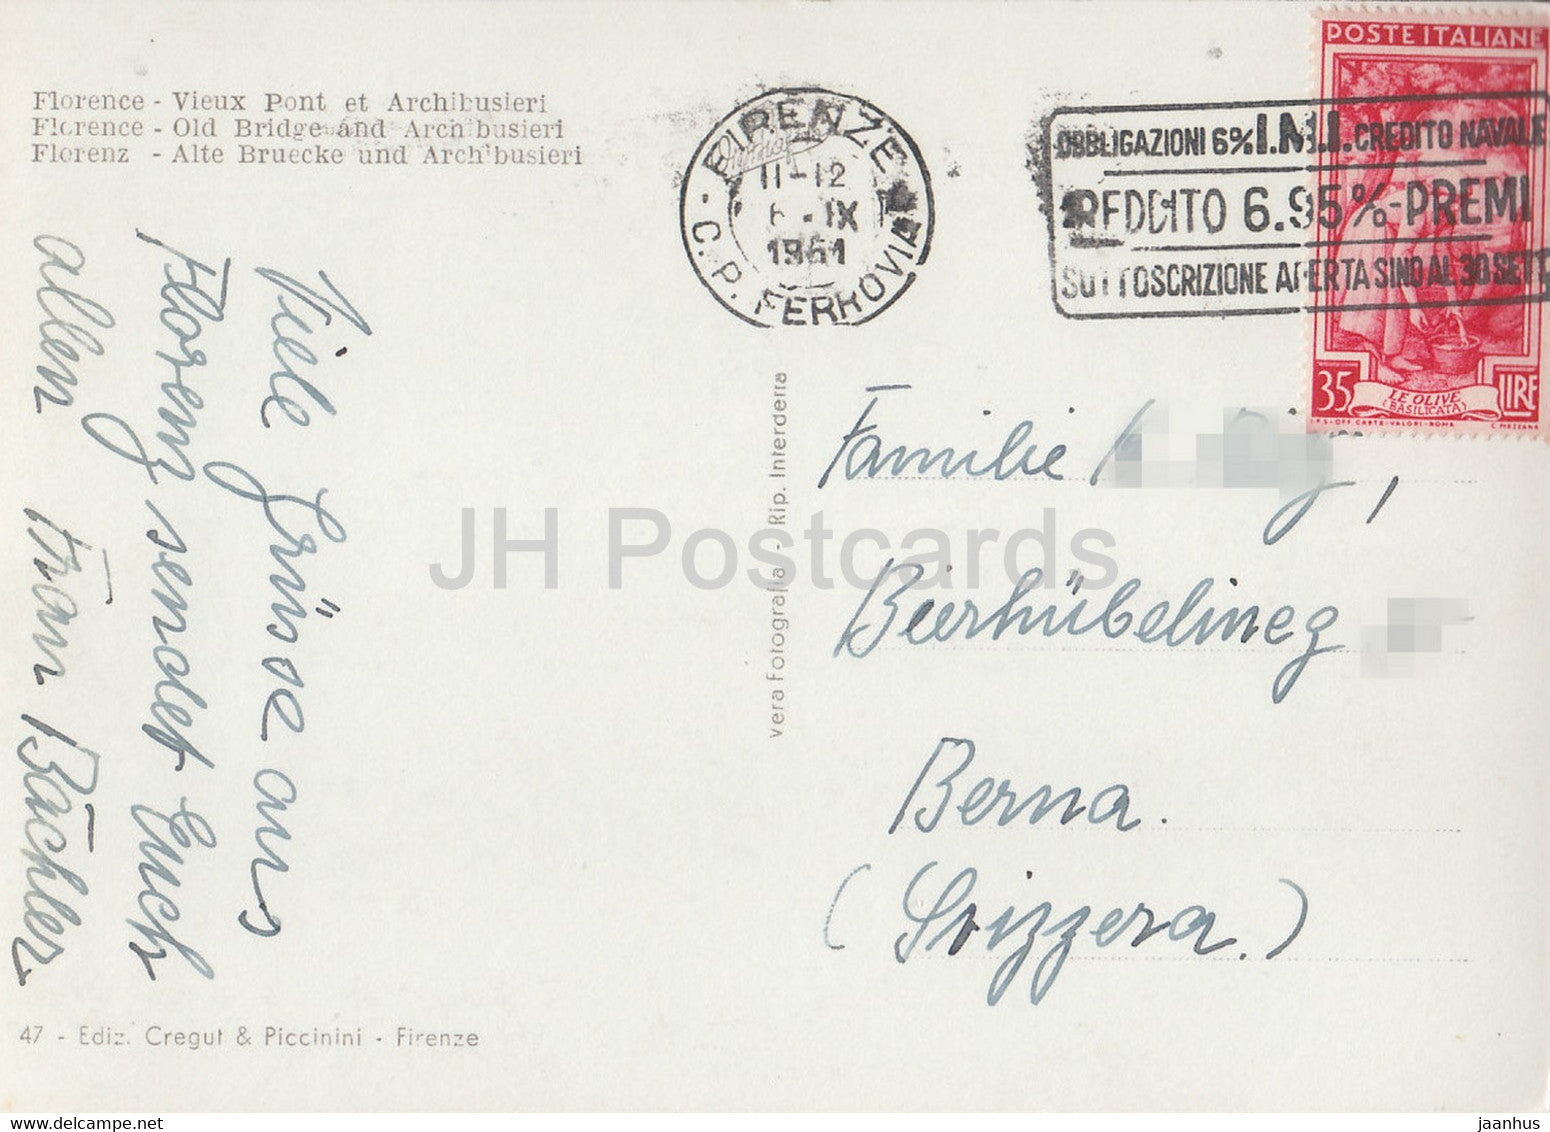 Florence - Vieux Pont et Archibusieri
Florence - Old Bridge and Archibusieri
Florenz - Alte Bruecke und Archibusieri
FIRENZE
11-12
6 .IX
1951
C.P. FERROVIA
OBBLIGAZIONI 6% I.M.I. CREDITO NAVALE
REDDITO 6.95%-PREMI
SOTTOSCRIZIONE APERTA SINO AL 30 SETT
POSTE ITALIANE
35 LE OLIVE LIRE
(BASILICATA)
I.P.S.-OFF. CARTE-VALORI-ROMA C. MEZZANA
Viele Grüsse aus
Florenz sendet Euch
allen Frau Bächler
vera Fotografia - Rip. Interdetta
Familie
Bierhübelineg
Berna.
(Svizzera.)
47 - Ediz. Cregut & Piccinini - Firenze
JH Postcards
jaanhus